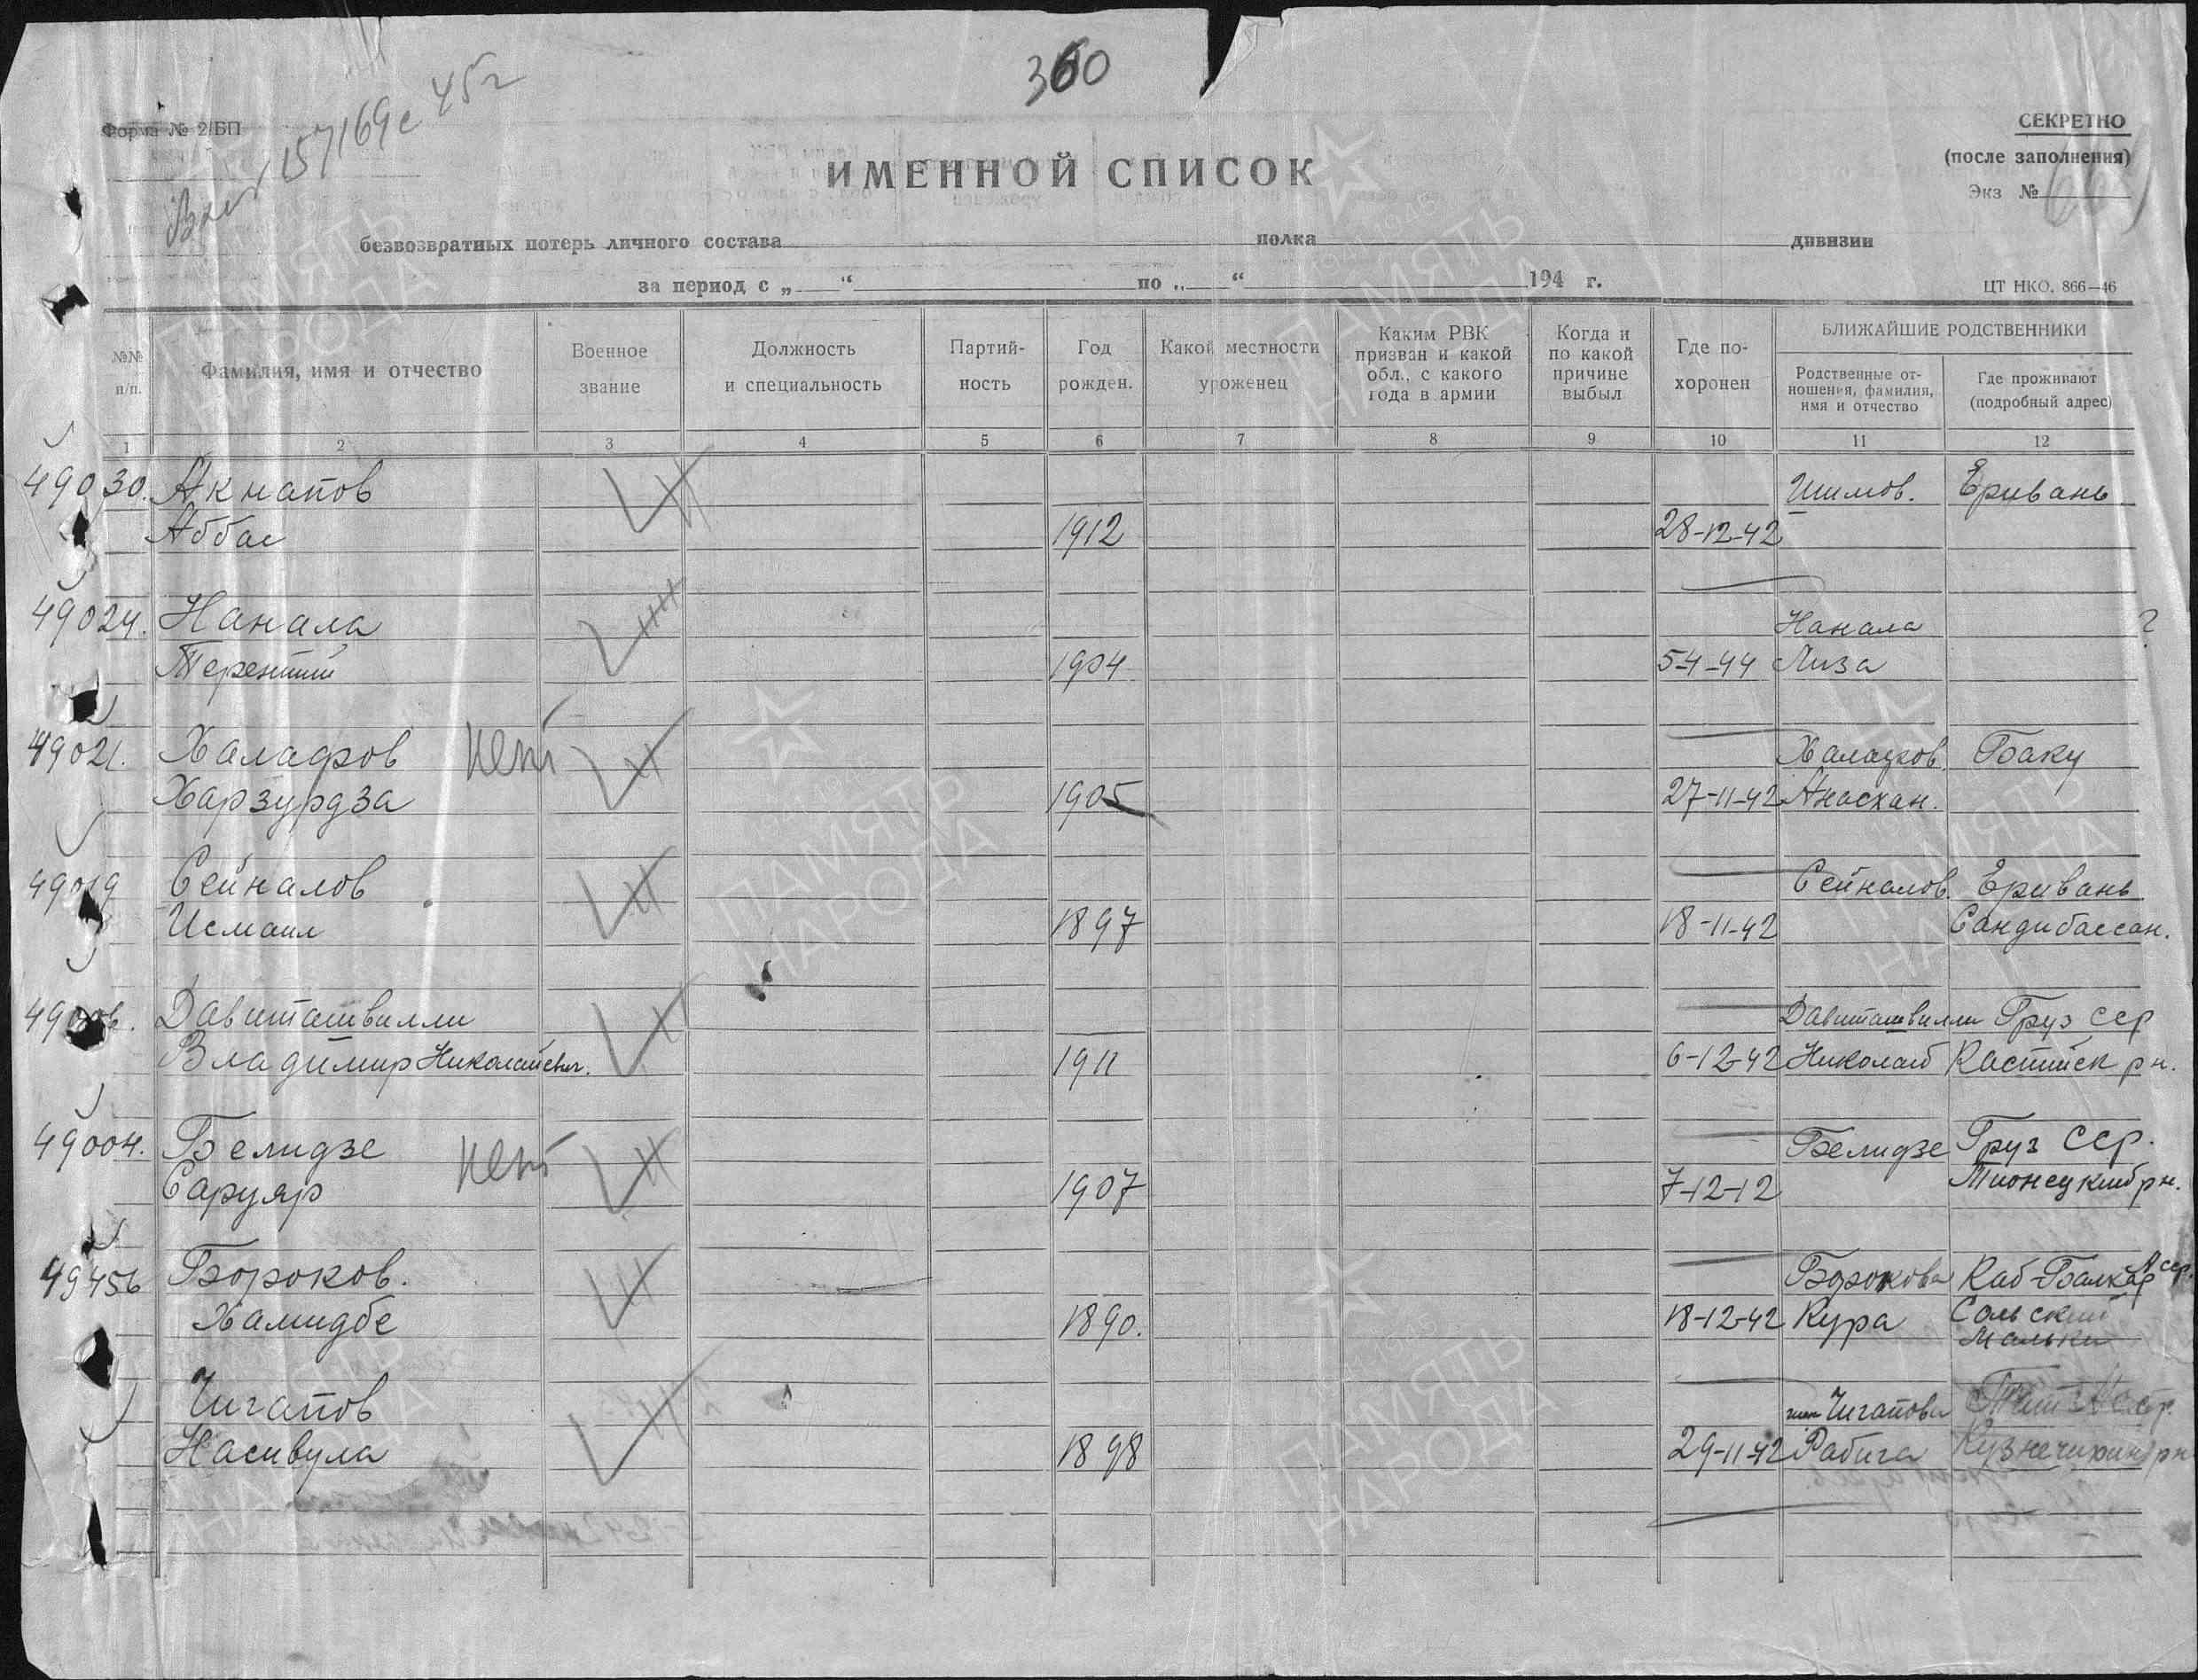 360
Форма № 2/БП
Вход 157169с 45г
СЕКРЕТНО
(после заполнения)
Экз №
ИМЕННОЙ СПИСОК
безвозвратных потерь личного состава полка дивизии
за период с „ “ по „ “ 194 г.
ЦТ НКО. 866—46
№№ п/п.
Фамилия, имя и отчество
Военное звание
Должность и специальность
Партий- ность
Год рожден.
Какой местности уроженец
Каким РВК призван и какой обл., с какого года в армии
Когда и по какой причине выбыл
Где по- хоронен
БЛИЖАЙШИЕ РОДСТВЕННИКИ
Родственные от- ношения, фамилия, имя и отчество
Где проживают (подробный адрес)
1 2 3 4 5 6 7 8 9 10 11 12
49030. Акнапов Шимов. Еривань
Аббас 1912 28-12-42
49024. Нанала Нанала ?
Терентий 1904 5-4-44 Лиза
49021. Халафов Халафов. Баку
Харзурдза 1905 27-11-42 Анасхан.
49019 Сейналов Сейналов. Еривань
Исмаил 1897 18-11-42 Сандибассан.
Давиташвилли Давиташвилли Груз сср
Владимир Николаевич. 1911 6-12-42 Николай Кастийск рн.
49004. Белидзе Белидзе Груз ССР.
Саруяр 1907 7-12-12
49456 Бороков. Борокова Каб-Балкар Асср.
Хамидбе 1890. 18-12-42 Кура Сольский
Мальки
Чигапов Чигапова
Насивула 1898 29-11-42 Рабига Кузнечихин рн
ПАМЯТЬ
НАРОДА